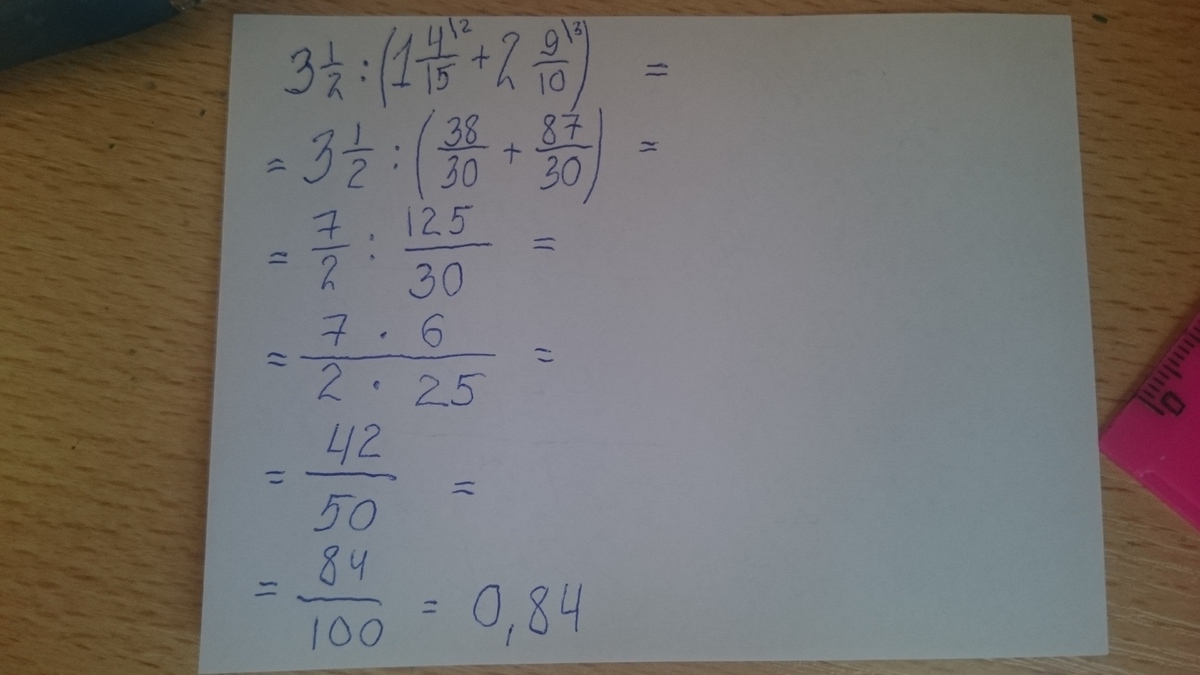 3 1/2 : (1 4\2/15 + 2 9\3/10) =
= 3 1/2 : (38/30 + 87/30) =
= 7/2 : 125/30 =
= 7 · 6 / 2 · 25 =
= 42/50 =
= 84/100 = 0,84
0